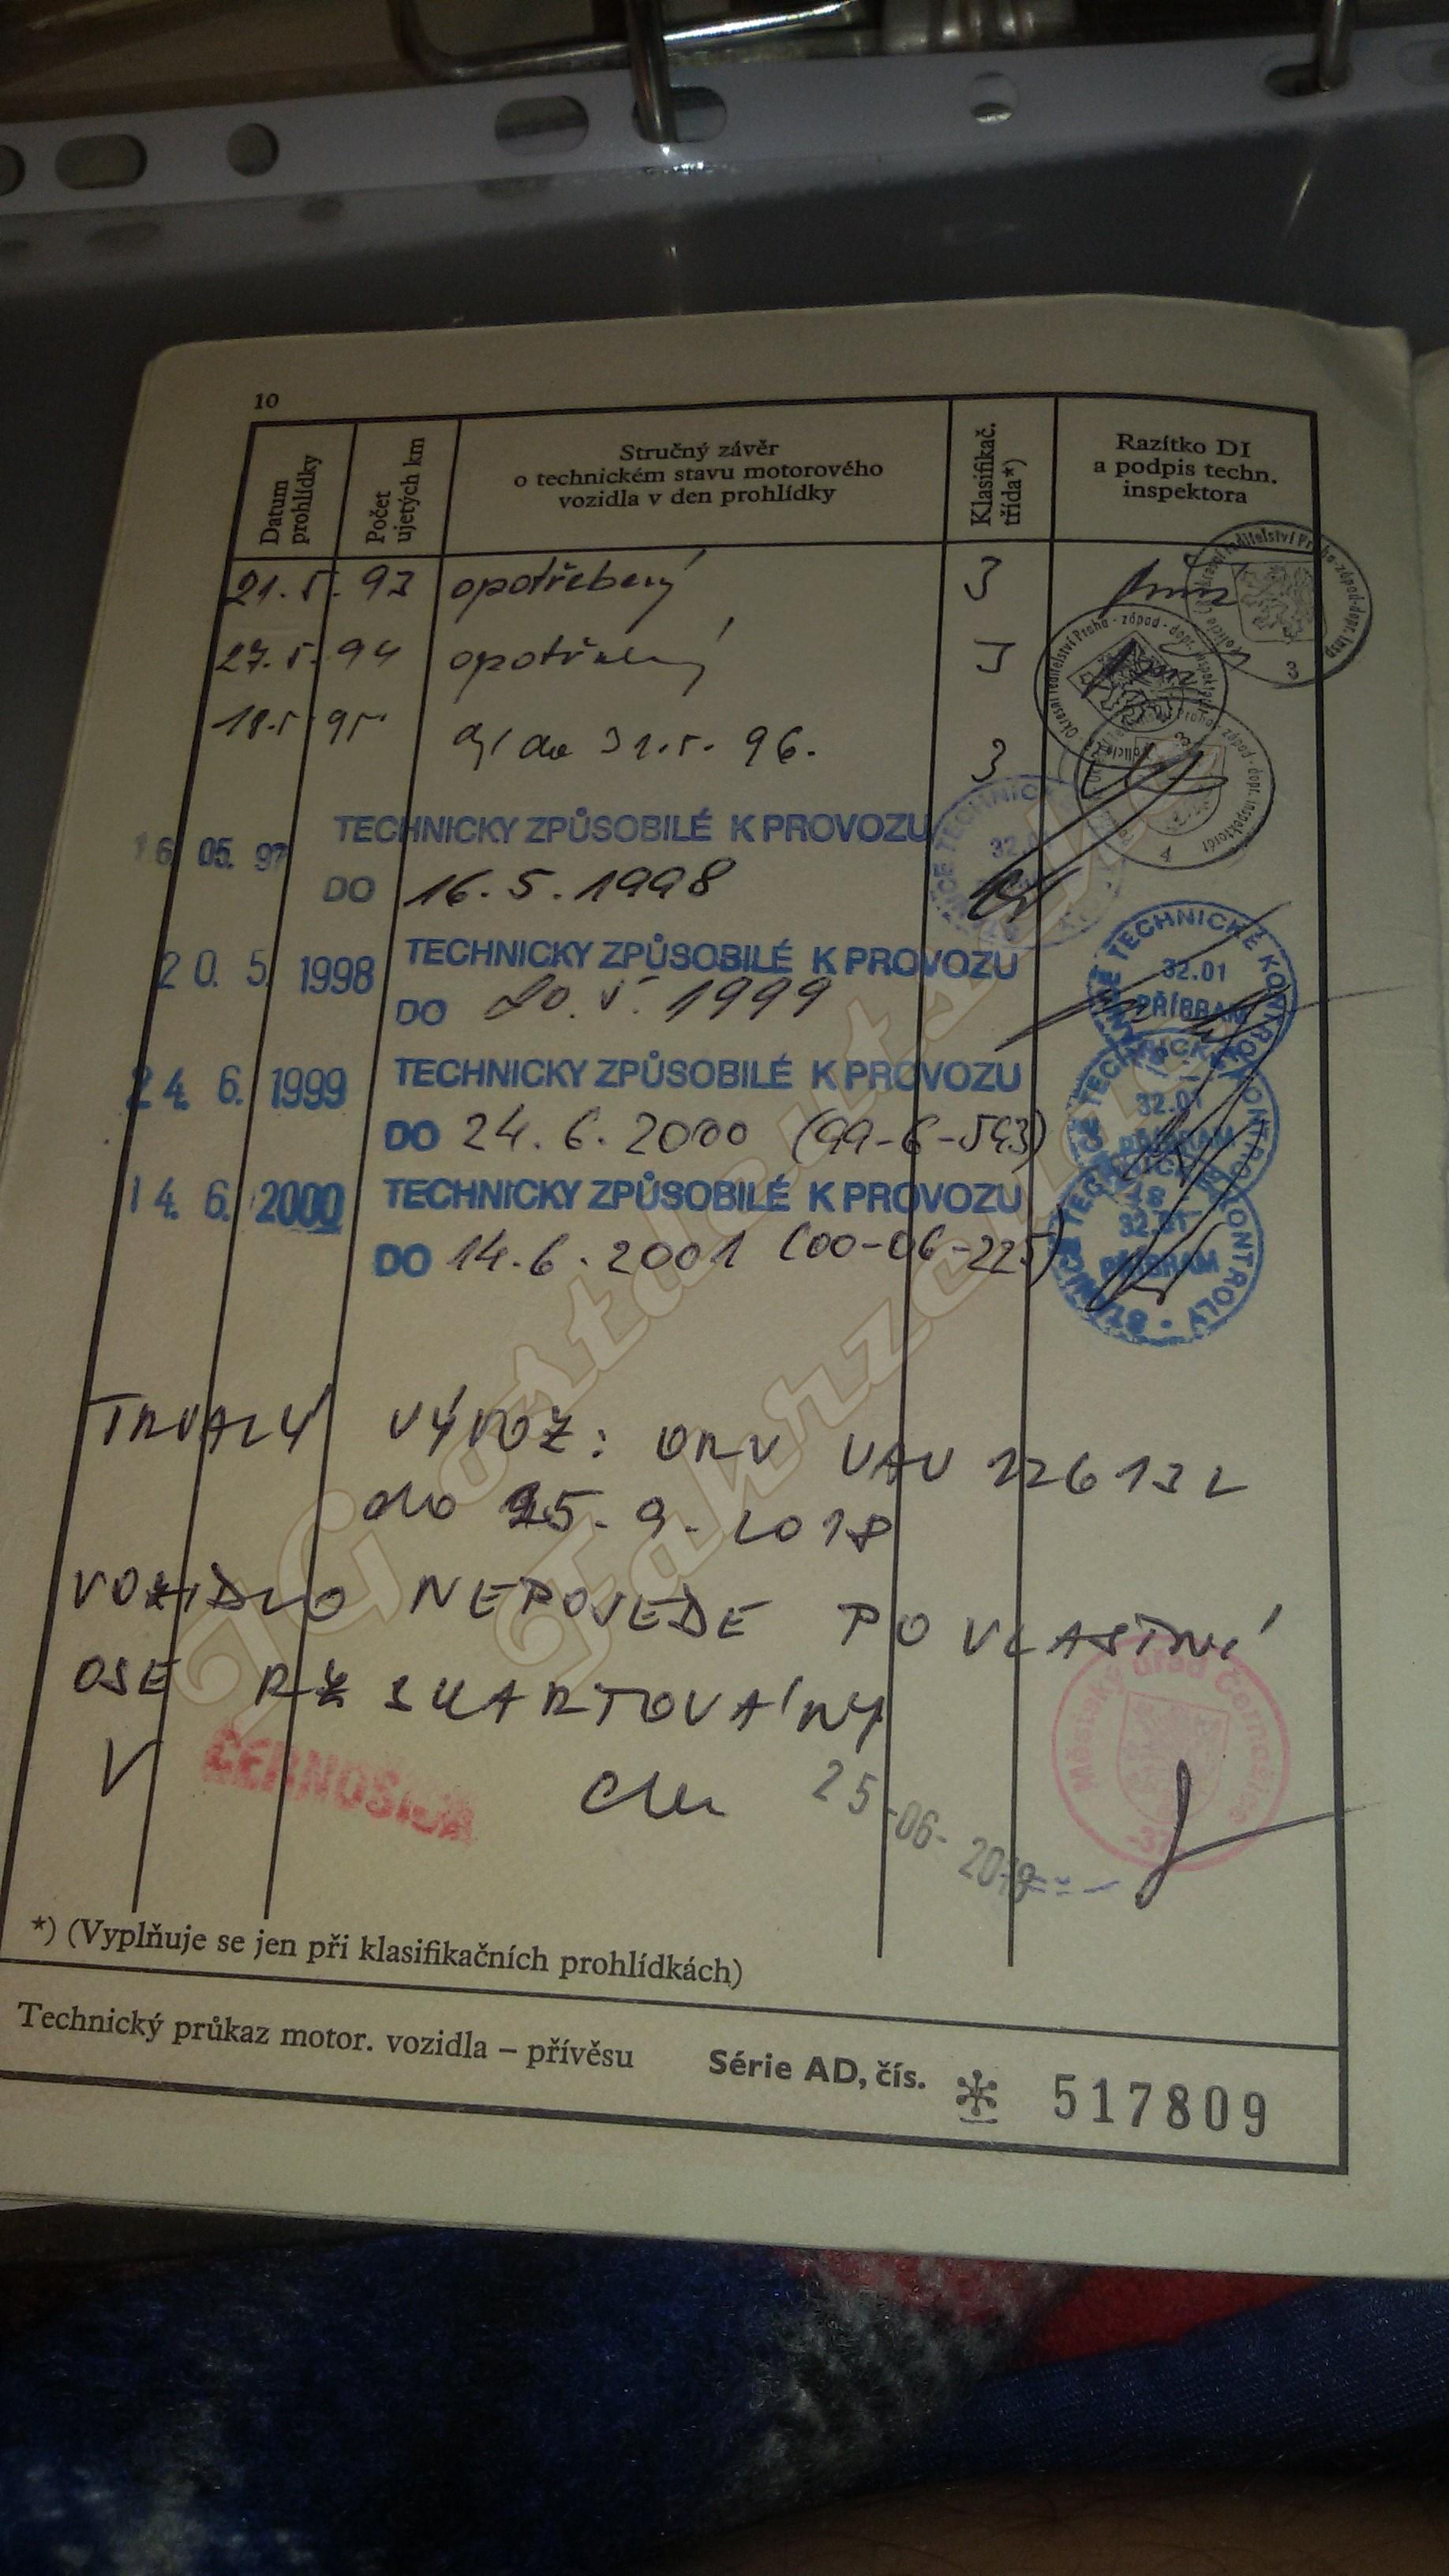 10
Datum prohlídky
Počet ujetých km
Stručný závěr
o technickém stavu motorového
vozidla v den prohlídky
Klasifikač. třída*)
Razítko DI
a podpis techn.
inspektora
21. 5. 93 opotřebený 3
27. 5. 94 opotřebený 3
18. 5. 95 do 31. 5. 96. 3
16 05. 97 TECHNICKY ZPŮSOBILÉ K PROVOZU
DO 16. 5. 1998
20. 5. 1998 TECHNICKY ZPŮSOBILÉ K PROVOZU
DO 20. 5. 1999
32.01
PŘÍBRAM
24. 6. 1999 TECHNICKY ZPŮSOBILÉ K PROVOZU
DO 24. 6. 2000 (99-6-543)
32.01
PŘÍBRAM
14. 6. 2000 TECHNICKY ZPŮSOBILÉ K PROVOZU
DO 14. 6. 2001 (00-06-225)
32.01
PŘÍBRAM
TRVALÝ VÝVOZ: ORV UAU
do 25. 9. 2018
VOZIDLO NEPOJEDE PO VLASTNÍ
OSE RZ SKARTOVÁNY
V ČERNOŠICÍCH dne 25 -06- 2018
Městský úřad Černošice
*) (Vyplňuje se jen při klasifikačních prohlídkách)
Technický průkaz motor. vozidla – přívěsu Série AD, čís. * 517809